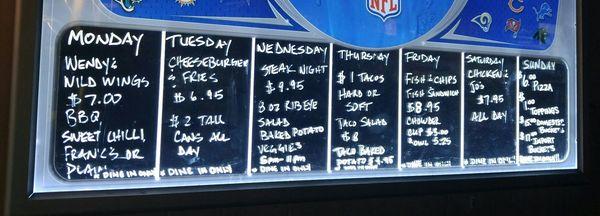 NFL
MONDAY
WENDY'S
WILD WINGS
$7.00
BBQ
SWEET CHILLI
FRANK'S OR
PLAIN
* DINE IN ONLY
TUESDAY
CHEESEBURGER
& FRIES
$6.95
$2 TALL
CANS ALL
DAY
* DINE IN ONLY
WEDNESDAY
STEAK NIGHT
$9.95
8 OZ RIBEYE
SALAD
BAKED POTATO
VEGGIES
5PM - 11PM
* DINE IN ONLY
THURSDAY
$1 TACOS
HARD OR
SOFT
TACO SALAD
$8
TACO BAKED
POTATO $4.95
* DINE IN ONLY
FRIDAY
FISH & CHIPS
FISH SANDWICH
$8.95
CHOWDER
CUP $3.00
BOWL 5.25
* DINE IN ONLY
SATURDAY
CHICKEN &
JO'S
$7.95
ALL DAY
* DINE IN ONLY
SUNDAY
PIZZA
$1.00
TOPPINGS
$15 DOMESTIC
BUCKETS
$17 IMPORT
BUCKETS